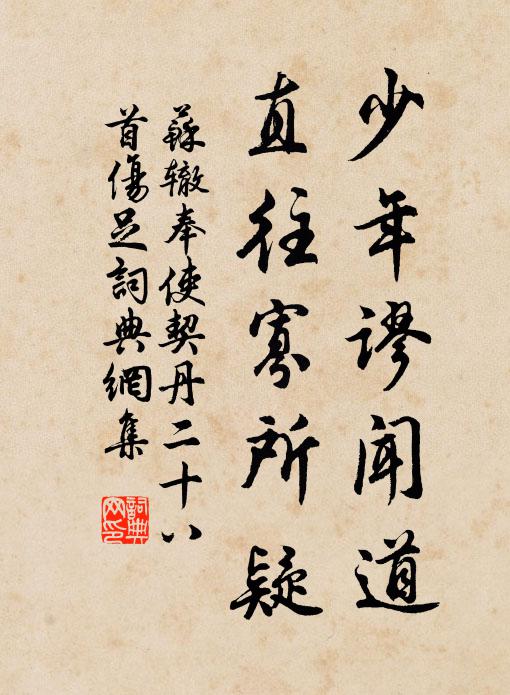 少年謬闻道
直往寡所疑
蘇辙奉使契丹二十八
首傷足詞典網集
詞典
网印